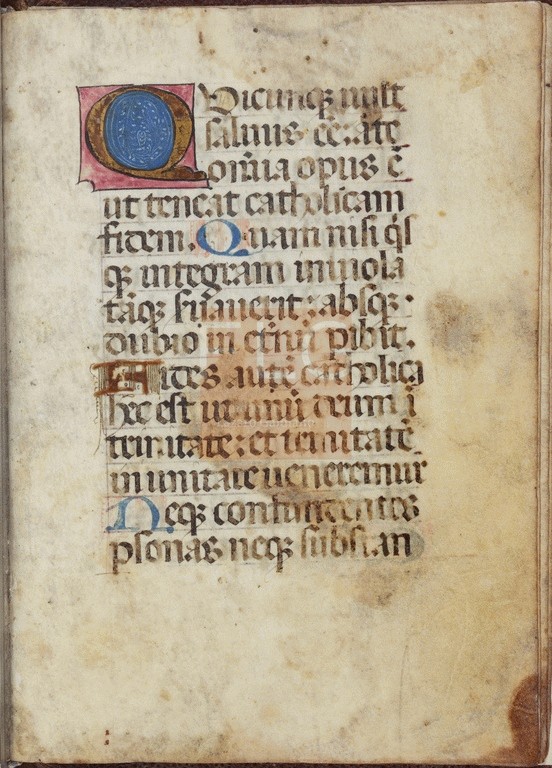 Quicunqꝫ uult
saluus eē: ãte
omīa opus ē
ut teneat catholicam
fidem. Quam nisi q̄s
qꝫ integram inuiola
tãqꝫ s̃uauerit: absqꝫ
dubio in et̃nū ꝑibit.
Fides autē catholica
hec est ut unū deum ī
trinitate: et trinitatē
in unitate ueneremur
Neqꝫ confundentes
ꝑsonas neqꝫ substan